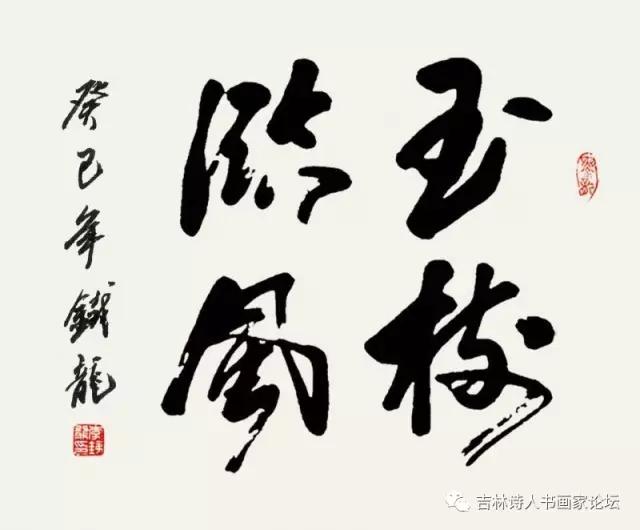 玉樹
臨風
癸巳年鐵龍
吉林诗人书画家论坛